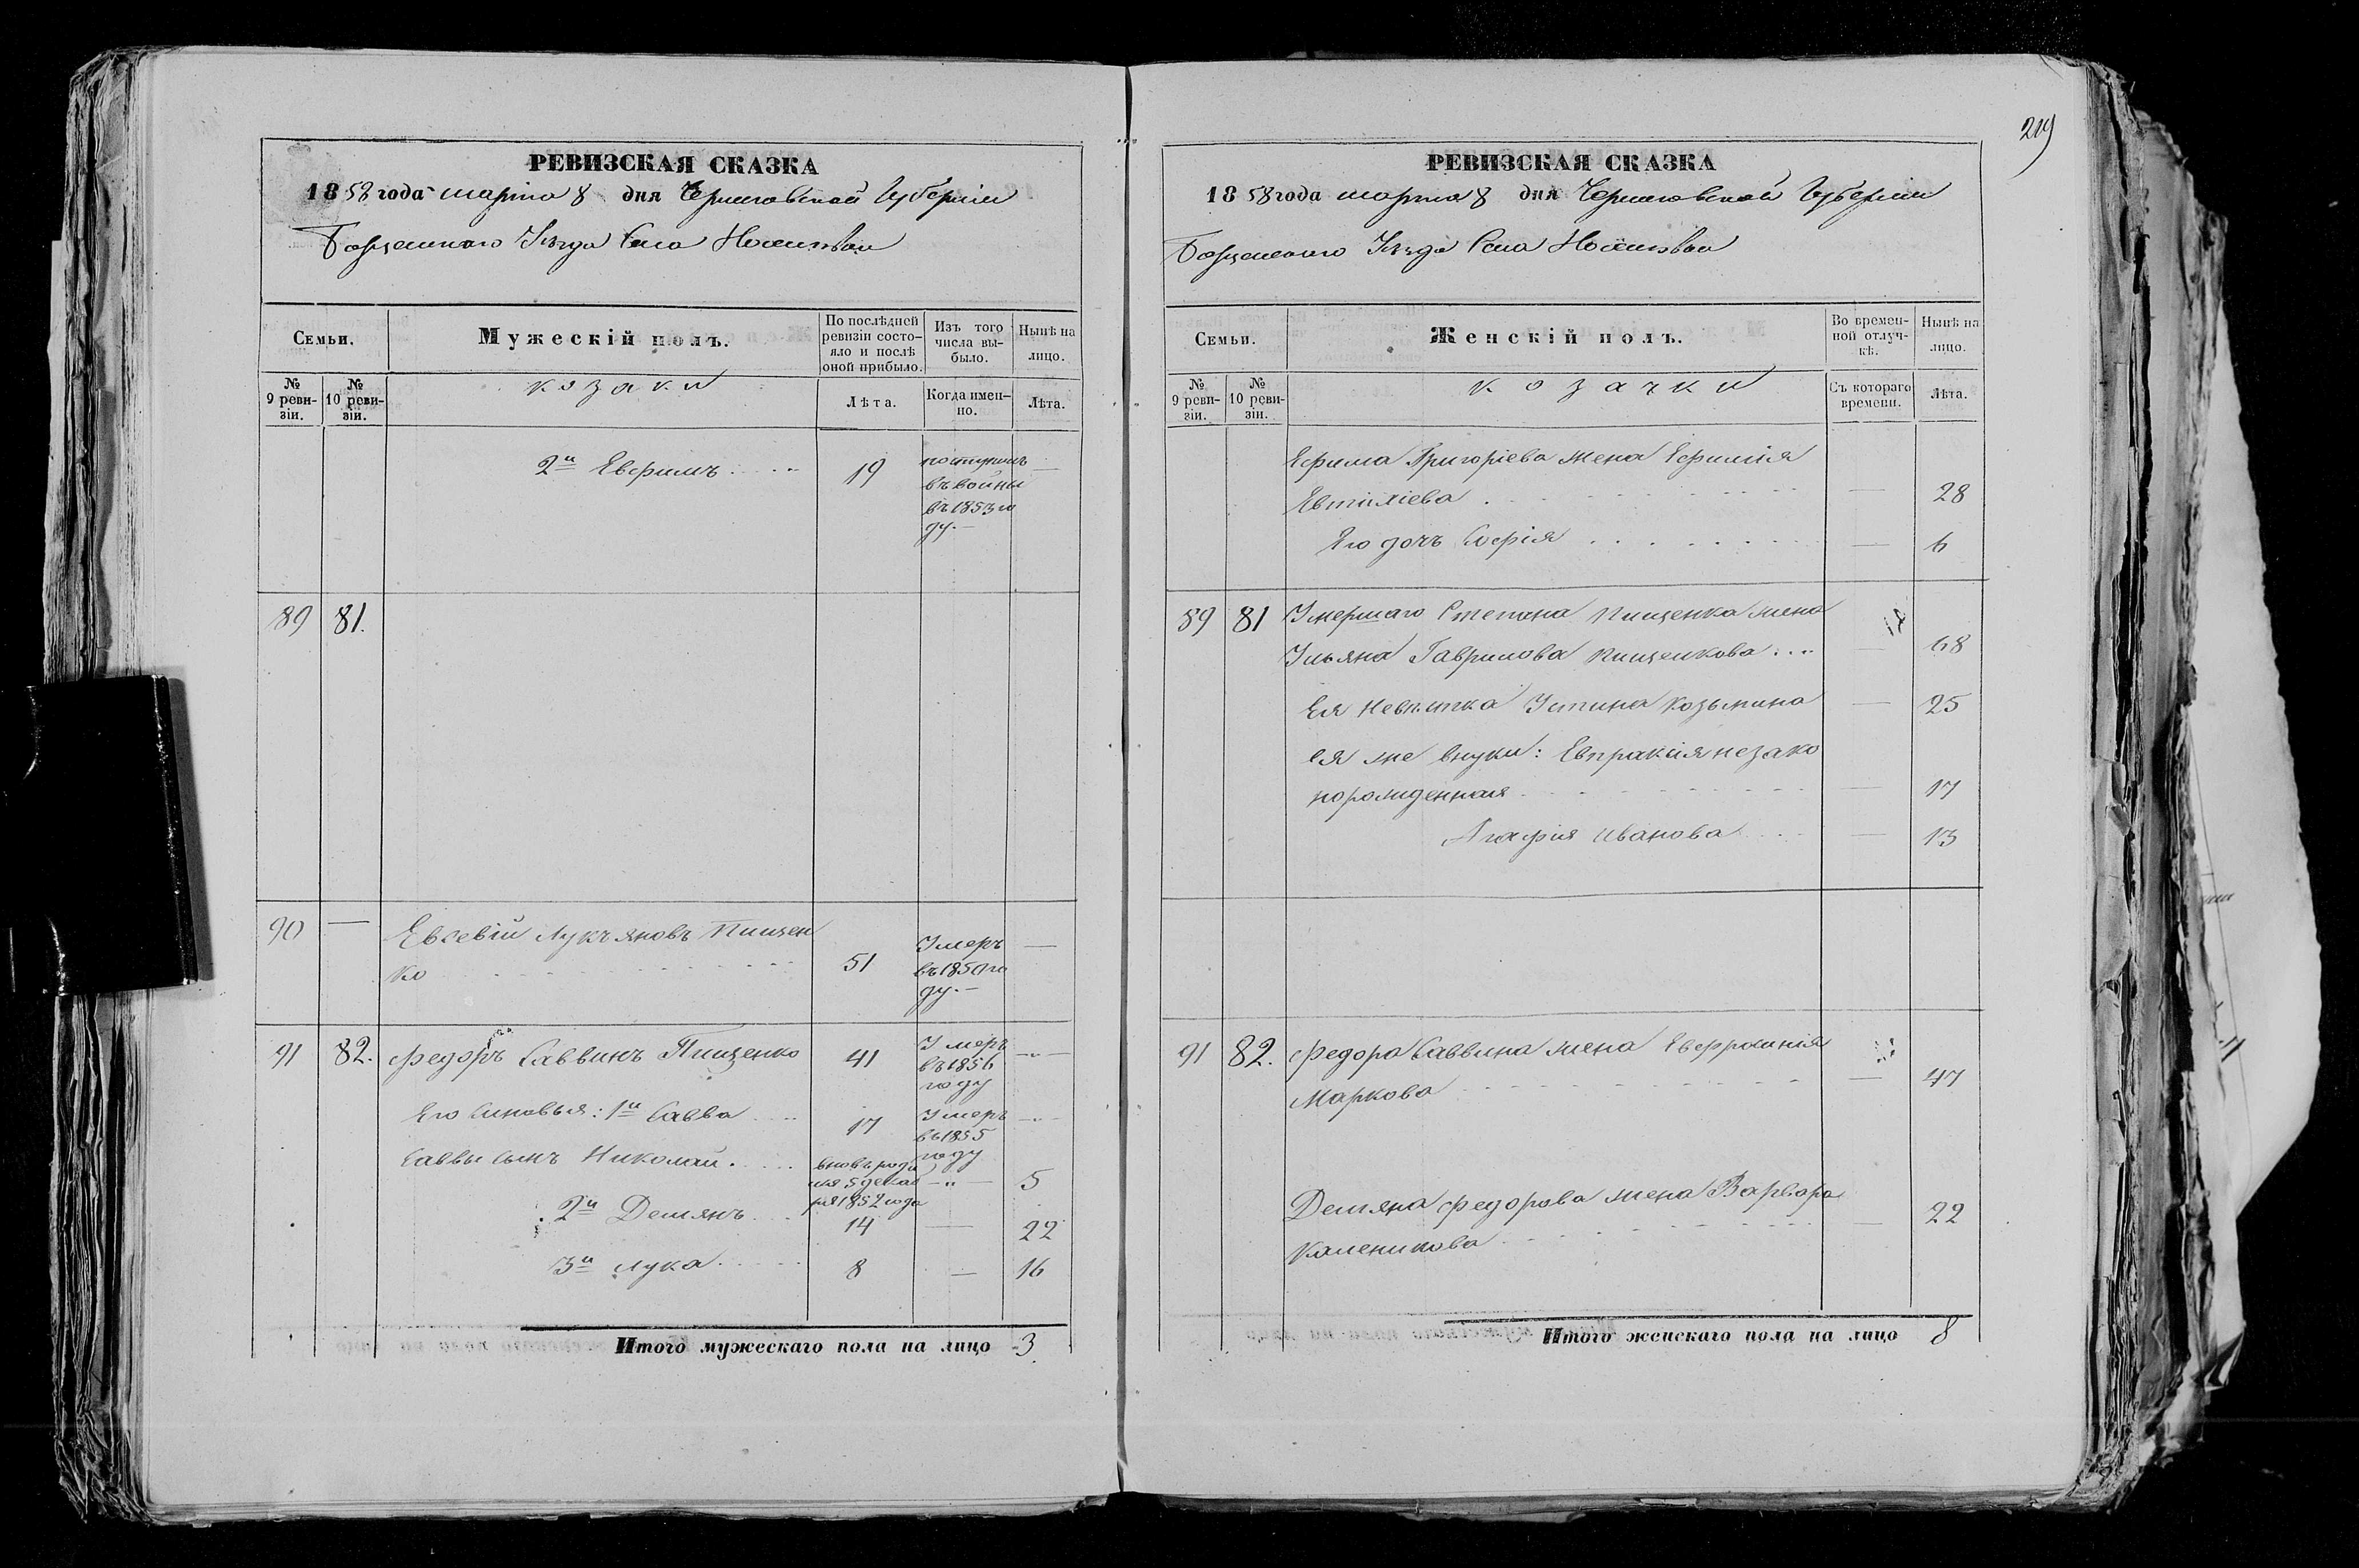 219
РЕВИЗСКАЯ СКАЗКА
1858 года марта 8 дня Черниговской Губерніи
Борзенскаго Уѣзда Села
Семьи.
Мужескій полъ.
По послѣдней ревизіи состояло и послѣ оной прибыло.
Изъ того числа выбыло.
Нынѣ на лицо.
№ 9 ревизіи.
№ 10 ревизіи.
козаки
Лѣта.
Когда именно.
Лѣта.
2й Евфимъ 19 —
въ 1853 го
ду.—
89 81.
90 — Евсевій Лукъяновъ Пищен
ко 51 Умеръ —
въ 1850 го
ду.—
91 82. Федоръ Саввинъ Пищенко 41 Умеръ —"—
въ 1856
году
Его сыновья: 1й Савва 17 Умеръ —"—
въ 1855
году
Саввы сынъ Николай. вновь роди
лся 5 декаб —"— 5
ря 1852 года
2й Демянъ 14 — 22
3й Лука 8 — 16
Итого мужескаго пола на лицо 3
РЕВИЗСКАЯ СКАЗКА
1858 года марта 8 дня Черниговской Губерніи
Борзенскаго Уѣзда Села
Семьи.
Женскій полъ.
Во временной отлучкѣ.
Нынѣ на лицо.
№ 9 ревизіи.
№ 10 ревизіи.
козачки
Съ котораго времени.
Лѣта.
Ефима Григоріева жена Ефимія
Евтихіева — 28
Его дочь Софія — 6
89 81 Умершаго Степана Пищенка жена
Ульяна Гаврилова Пищенкова — 68
Ея невѣстка Устина Козьмина — 25
ея же внуки: Евпраксія незако
норожденная 17
Агафія Иванова — 13
91 82. Федора Саввина жена Евфросинія
Маркова — 47
Демяна Федорова жена Варвара
Каленикова — 22
Итого женскаго пола на лицо 8